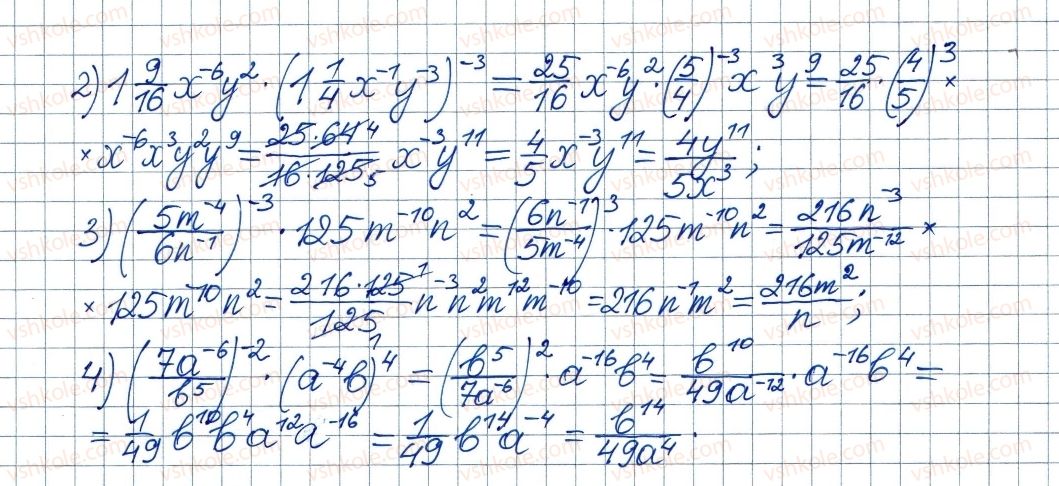 2) 1 9/16 x⁻⁶y² · (1 1/4 x⁻¹y⁻³)⁻³ = 25/16 x⁻⁶y² · (5/4)⁻³ x³y⁹ = 25/16 · (4/5)³ ×
× x⁻⁶x³y²y⁹ = 25·64 4/16·125 5 x⁻³y¹¹ = 4/5 x⁻³y¹¹ = 4y¹¹/5x³ ;
3) (5m⁻⁴/6n⁻¹)⁻³ · 125m⁻¹⁰n² = (6n⁻¹/5m⁻⁴)³ · 125m⁻¹⁰n² = 216n⁻³/125m⁻¹² ×
× 125m⁻¹⁰n² = 216·125 1/125 1 n⁻³n²m¹²m⁻¹⁰ = 216n⁻¹m² = 216m²/n ;
4) (7a⁻⁶/b⁵)⁻² · (a⁻⁴b)⁴ = (b⁵/7a⁻⁶)² · a⁻¹⁶b⁴ = b¹⁰/49a⁻¹² · a⁻¹⁶b⁴ =
= 1/49 b¹⁰b⁴a¹²a⁻¹⁶ = 1/49 b¹⁴a⁻⁴ = b¹⁴/49a⁴ .
vshkole.com